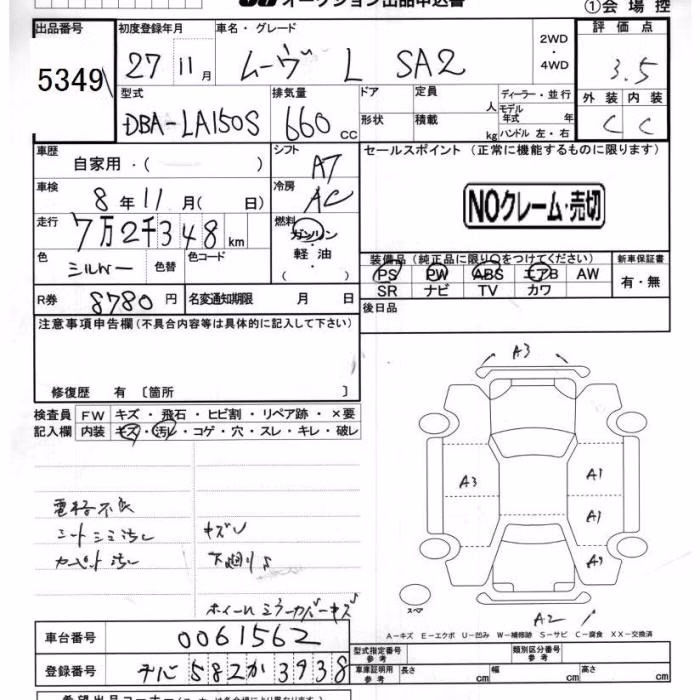 オークション出品申込書
①会場控
出品番号
5349
初度登録年月
27 11月
車名・グレード
ムーヴ L SA2
2WD
・
4WD
評価点
3.5
外装 内装
C C
型式
DBA-LA150S
排気量
660 cc
ドア
形状
定員
人
積載
kg
ディーラー・並行
モデル年式 年
ハンドル 左・右
車歴
自家用・( )
シフト
AT
セールスポイント (正常に機能するものに限ります)
NOクレーム・売切
車検
8年11月( 日)
冷房
AC
走行
7万2千348km
燃料
ガソリン
・
軽油
・
( )
色
シルバー
色替
色コード
装備品(純正品に限り○をつけてください)
PS PW ABS エアB AW
SR ナビ TV カワ
新車保証書
有・無
R券
8780円
名変通知期限 月 日
後日品
注意事項申告欄(不具合内容等は具体的に記入して下さい)
修復歴 有 〔箇所 〕
検査員記入欄
FW キズ・飛石・ヒビ割・リペア跡・×要
内装 キズ・汚レ・コゲ・穴・スレ・キレ・破レ
電格不良
シートシミ汚レ
カーペット汚レ
キズU
下廻り
ホイール ミラーカバーキズ
A3
A3
A1
A1
A2
スペア
A-キズ E-エクボ U-凹み W-補修跡 S-サビ C-腐食 XX-交換済
車台番号
0061562
登録番号
582か3938
型式指定番号
参考
類別区分番号
参考
車庫証明用
参考
長さ cm
幅 cm
高さ cm